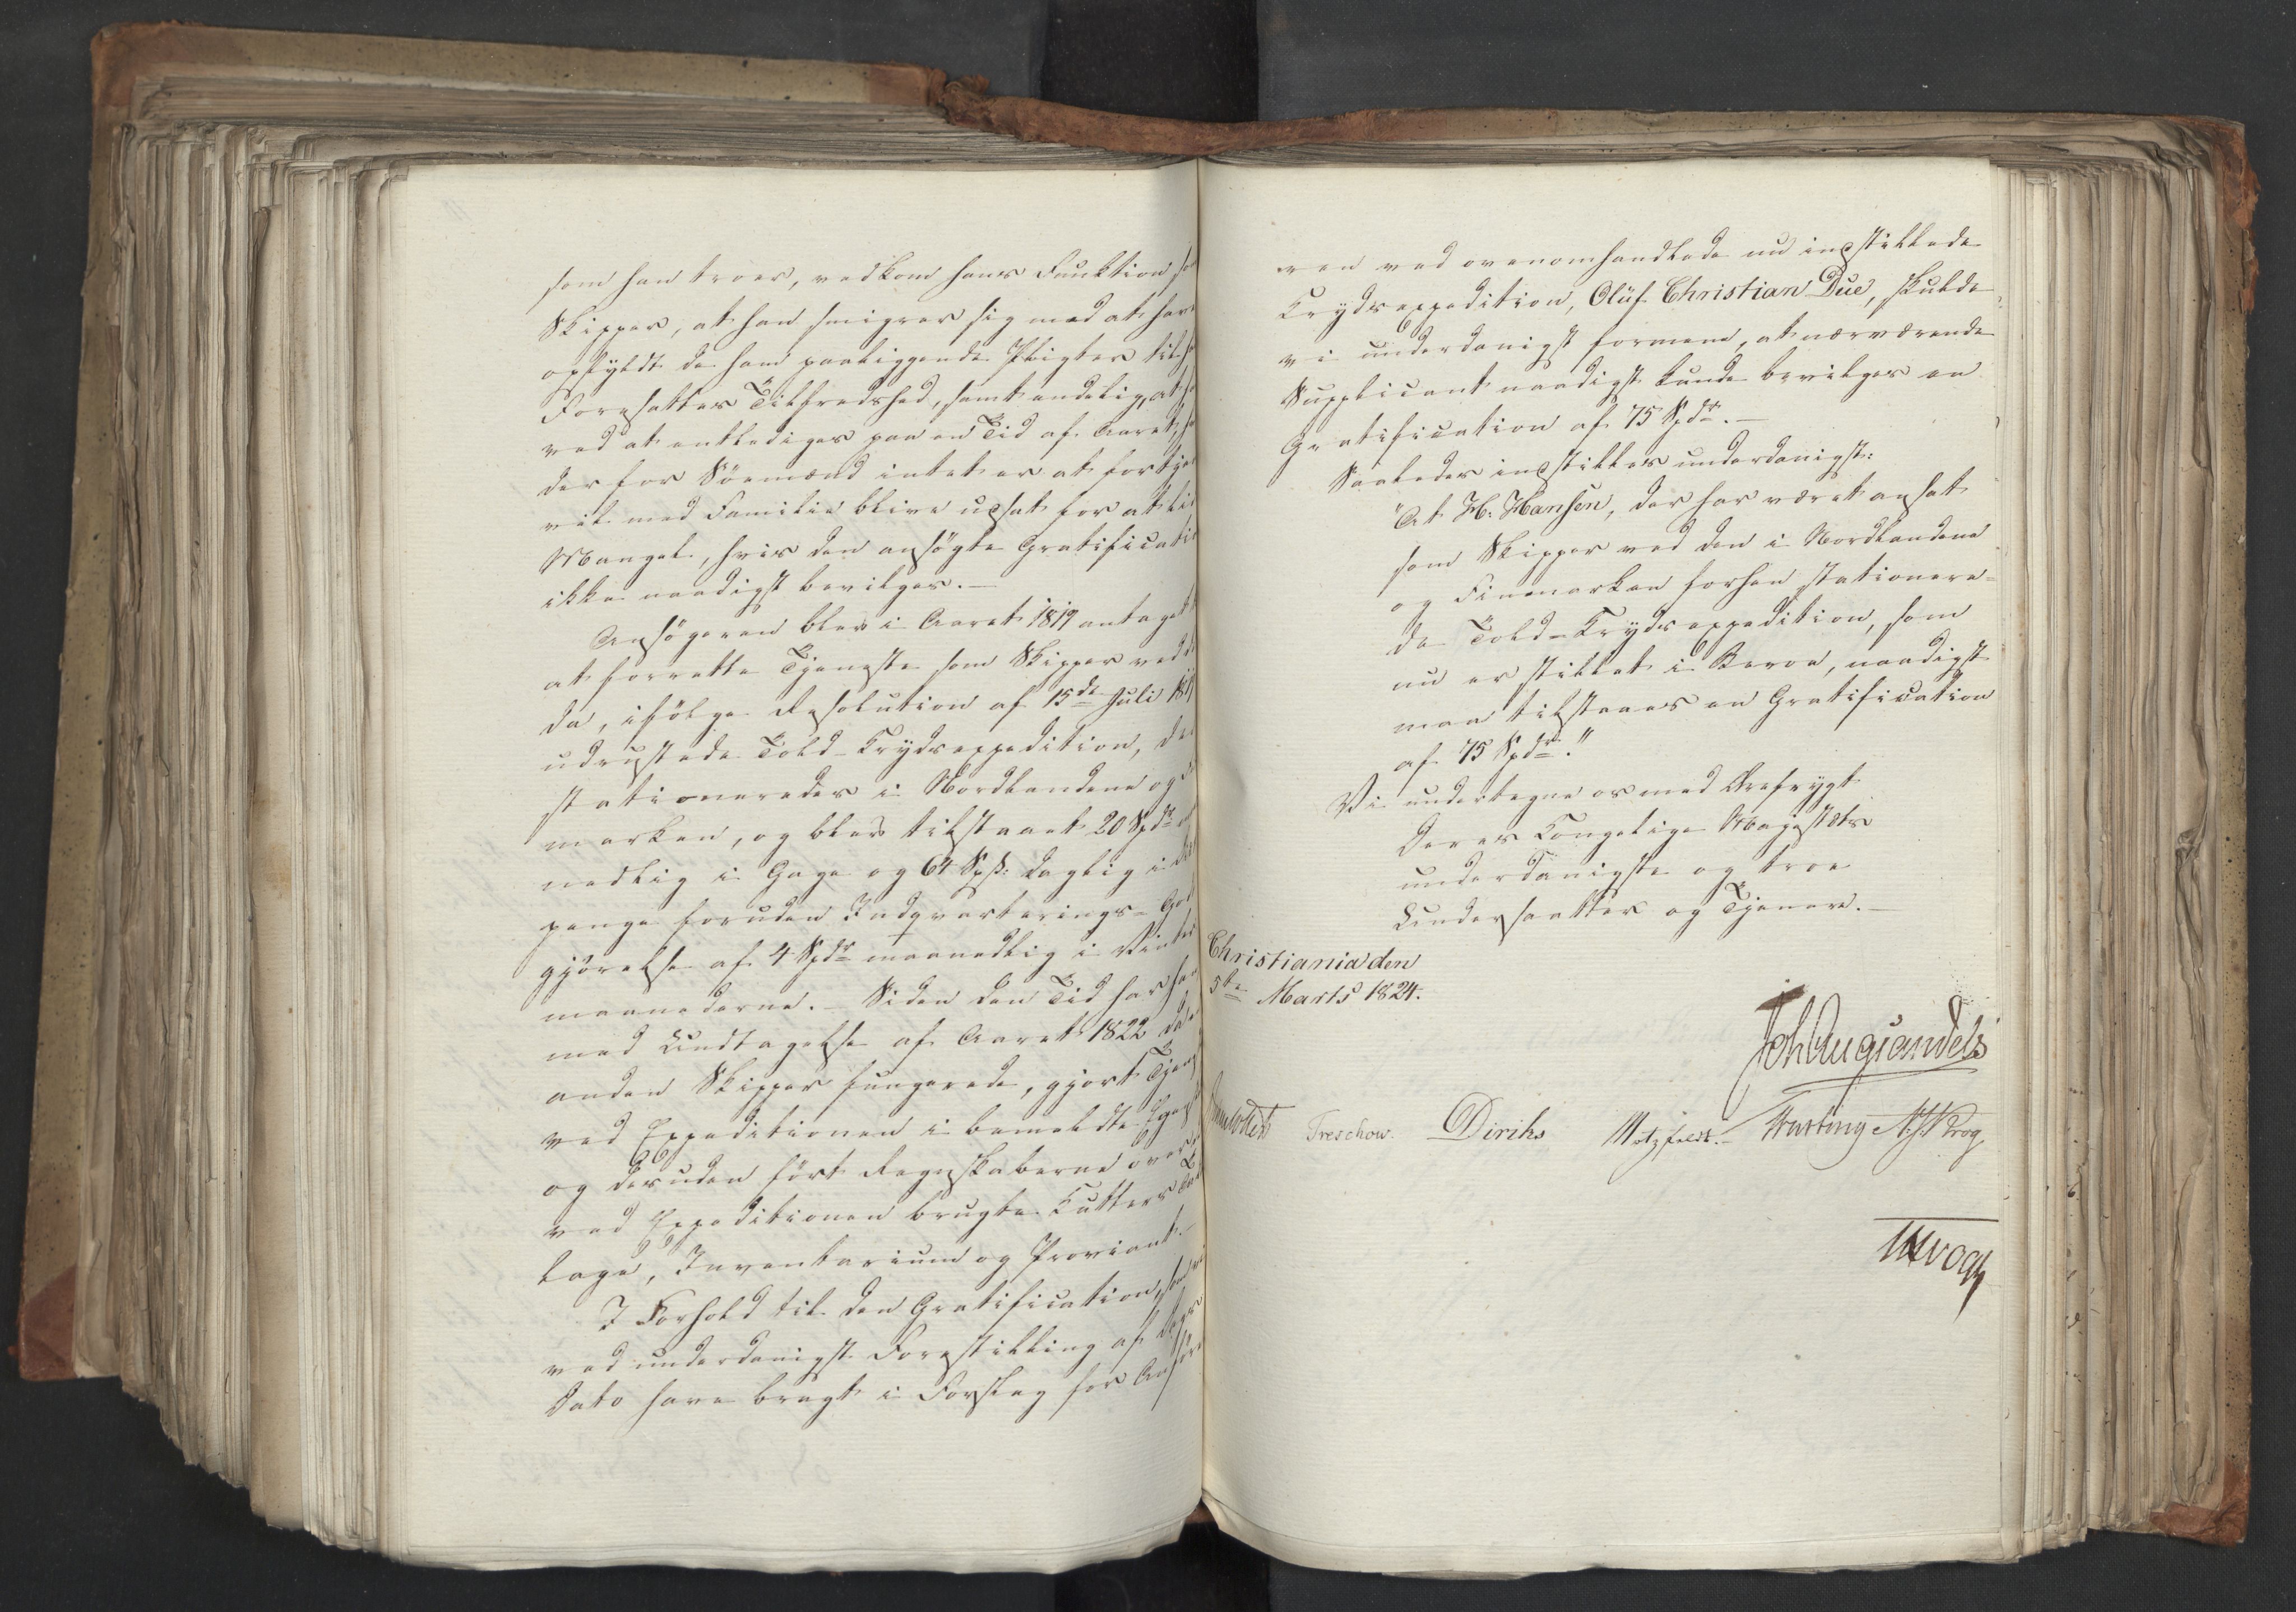 som han troer, vedkom hans Funktion so
Skipper, at han smigrer sig med at have
opfyldt de ham paaliggende Pligter til h
Foresattes Tilfredshed, samt endelig, at h
ved at entlediges paa en Tid af Aaret, h
der for Söemænd intet er at fortje
vil med Familie blive udsat for at li
Mangel, hvis den ansögte Gratificati
ikke naadigst bevilges. —
Ansögeren blev i Aaret 1819 antaget
at forrette Tjeneste som Skipper ved d
da, ifölge Resolution af 15de Juli 181
udrustede Told-Krydsexpedition, de
stationeredes i Nordlandene og
marken, og blev tilstaaet 20 Spdr
nedlig i Gage og 64 Spß: daglig i
penge foruden Indqvarterings- God
gjörelse af 4 Spdr maanedlig i Vinter
maanederne. — Siden den Tid har han
med Undtagelse af Aaret 1822 da
anden Skipper fungerede, gjort Tjenes
ved Expeditionen i bemeldte Egensk
og desuden fört Regnskaberne over
ved Expeditionen brugte Kutters
lage, Inventarium og Proviant. —
I Forhold til den Gratification, som vi
ved underdanigst Forestilling af Dags
Dato have bragt i Forslag for Anföre
ren ved ovenomhandlede nu indstillede
Krydsexpedition, Oluf Christian Due, skulde
vi underdanigst formene, at nærværende
Supplicant naadigst kunde bevilges en
Gratification af 75 Spdr. —
Saaledes indstilles underdanigst:
"At H. Hansen, der har været ansat
som Skipper ved den i Nordlandene
og Finmarken forhen stationere-
de Told-Krydsexpedition, som
nu er stillet i Bero, naadigst
maa tilstaaes en Gratification
af 75 Spdr."
Vi undertegne os med Ærefrygt
Deres Kongelige Majestæts
underdanigste og troe
Undersaatter og Tjenere. —
Christiania den
5te Marts 1824.
Joh Aug Sandels
Treschow. Diriks Motzfeldt. — Fasting N. J. Krog
Vogt